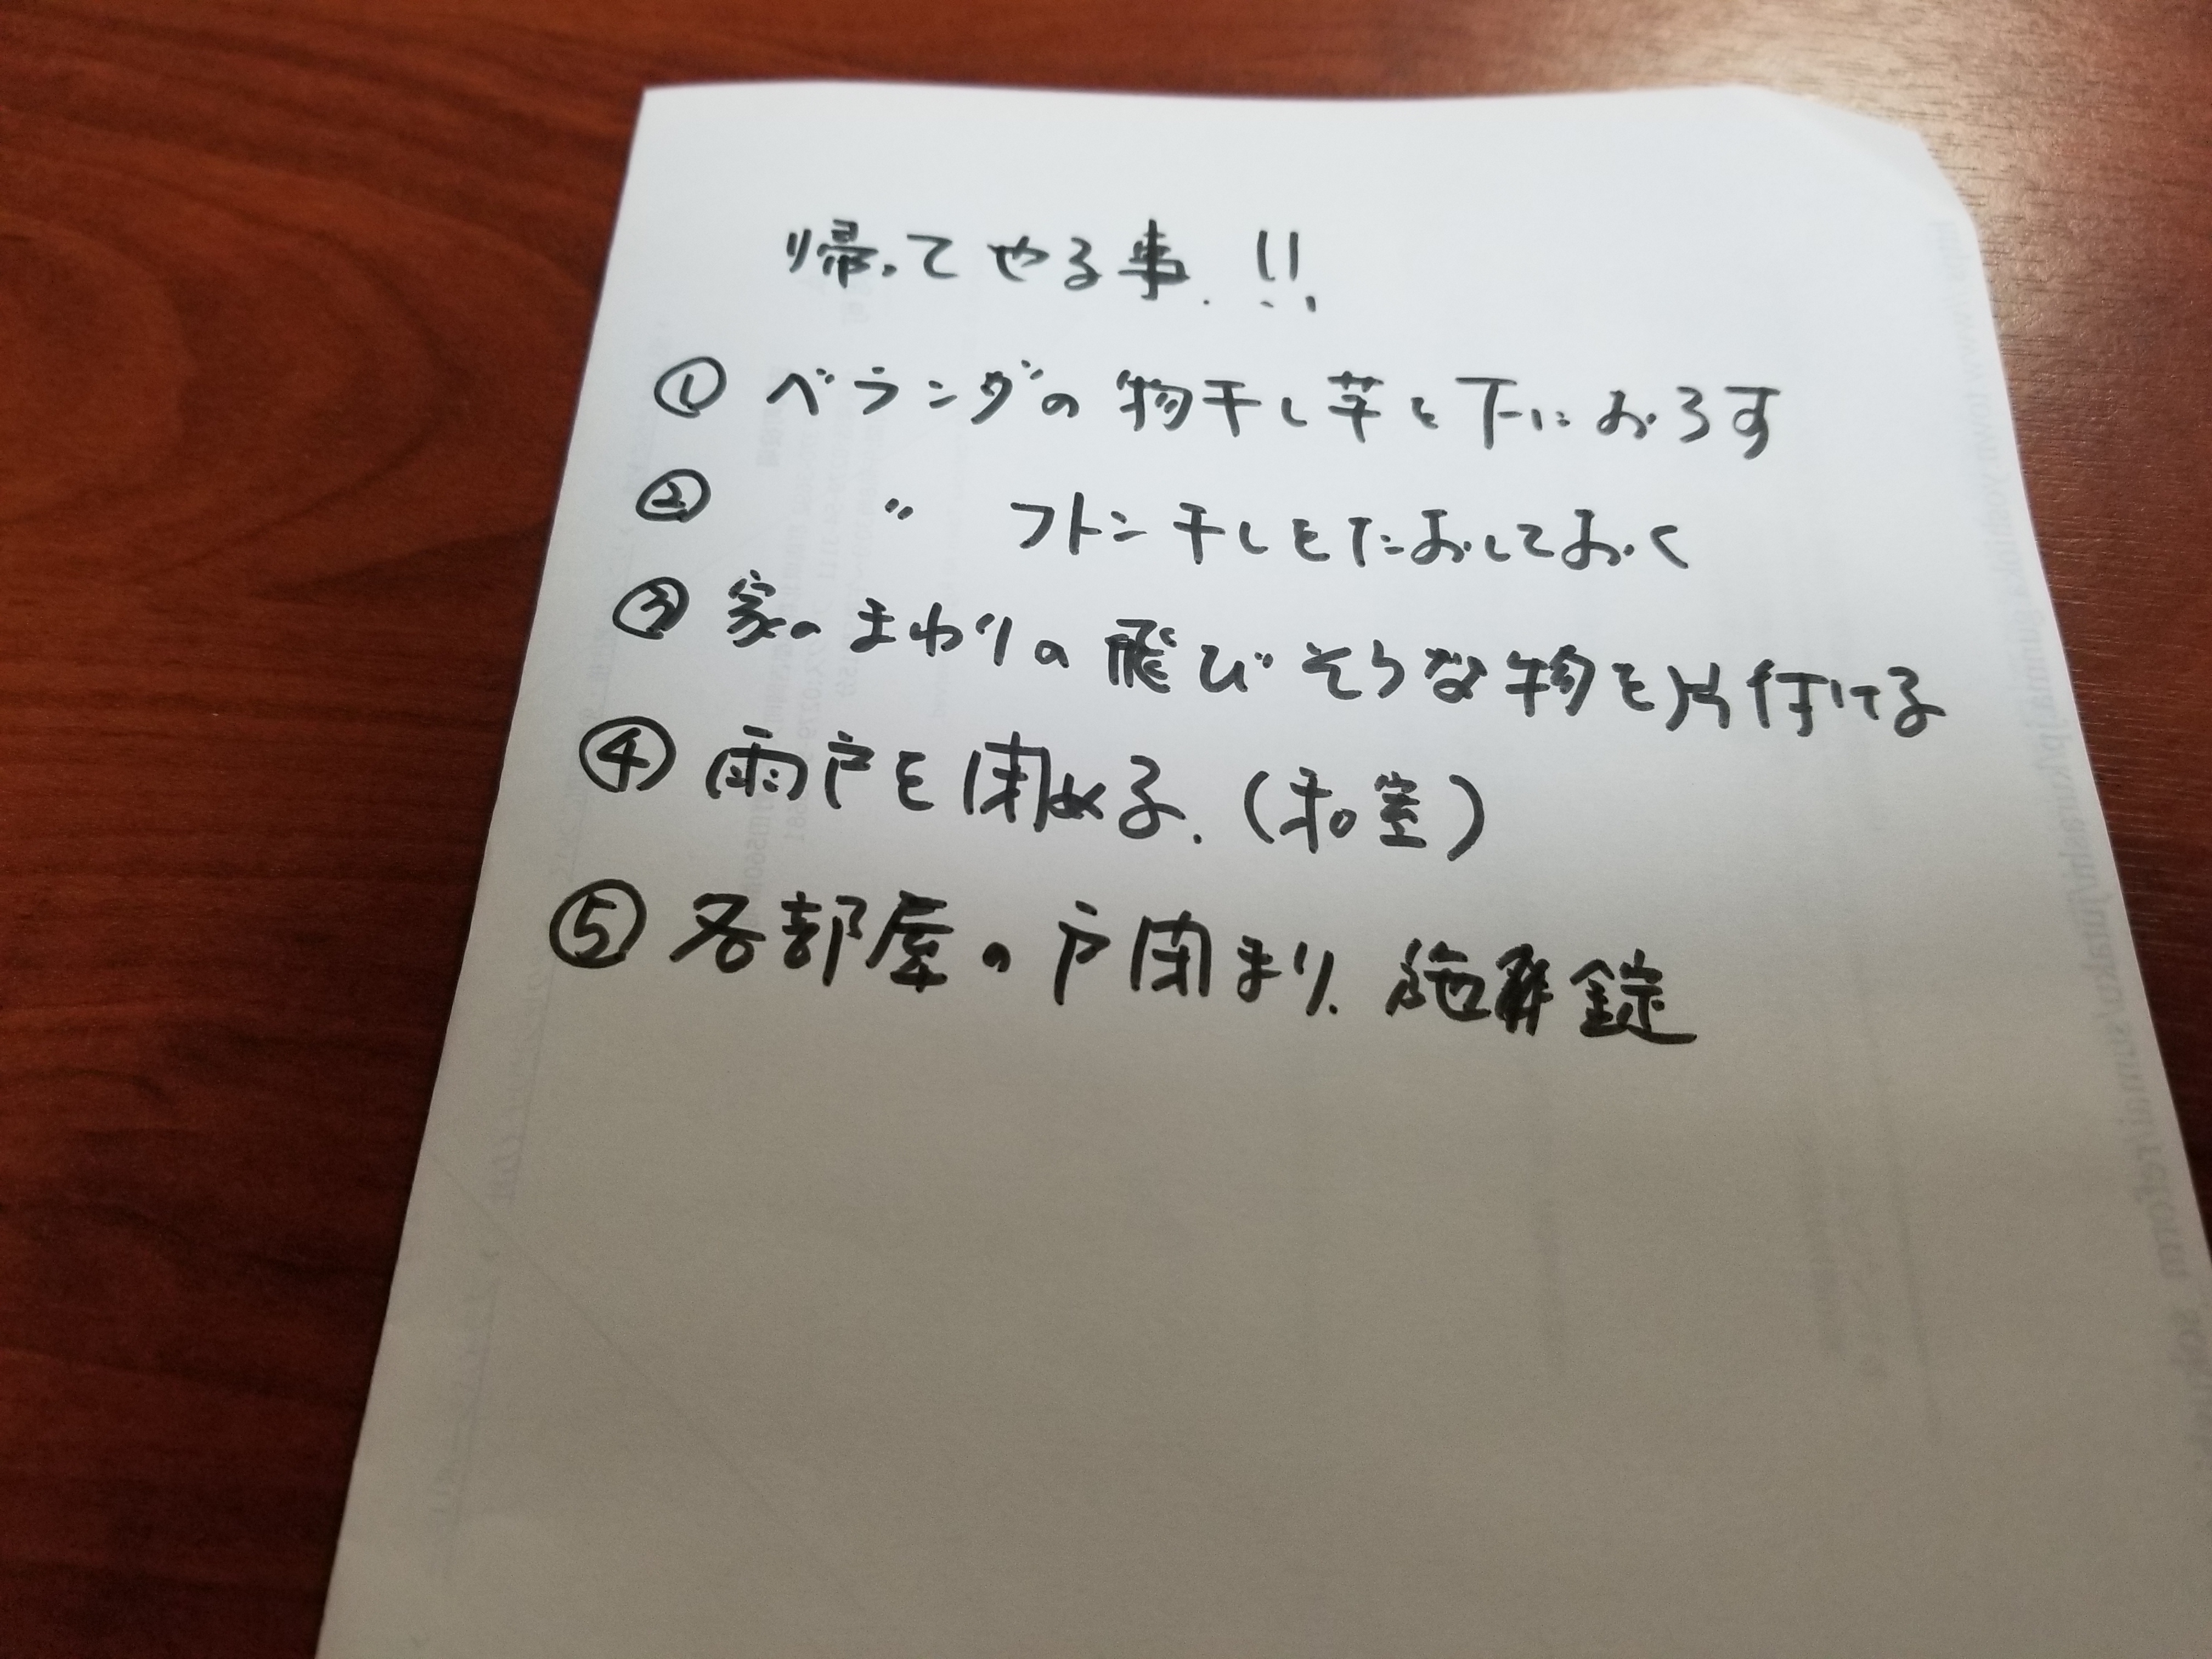 帰ってやる事.!!
① ベランダの物干し竿を下におろす
② 〃 フトン干しをたおしておく
③ 家のまわりの飛びそうな物を片付ける
④ 雨戸を閉める.(和室)
⑤ 各部屋の戸閉まり.施錠